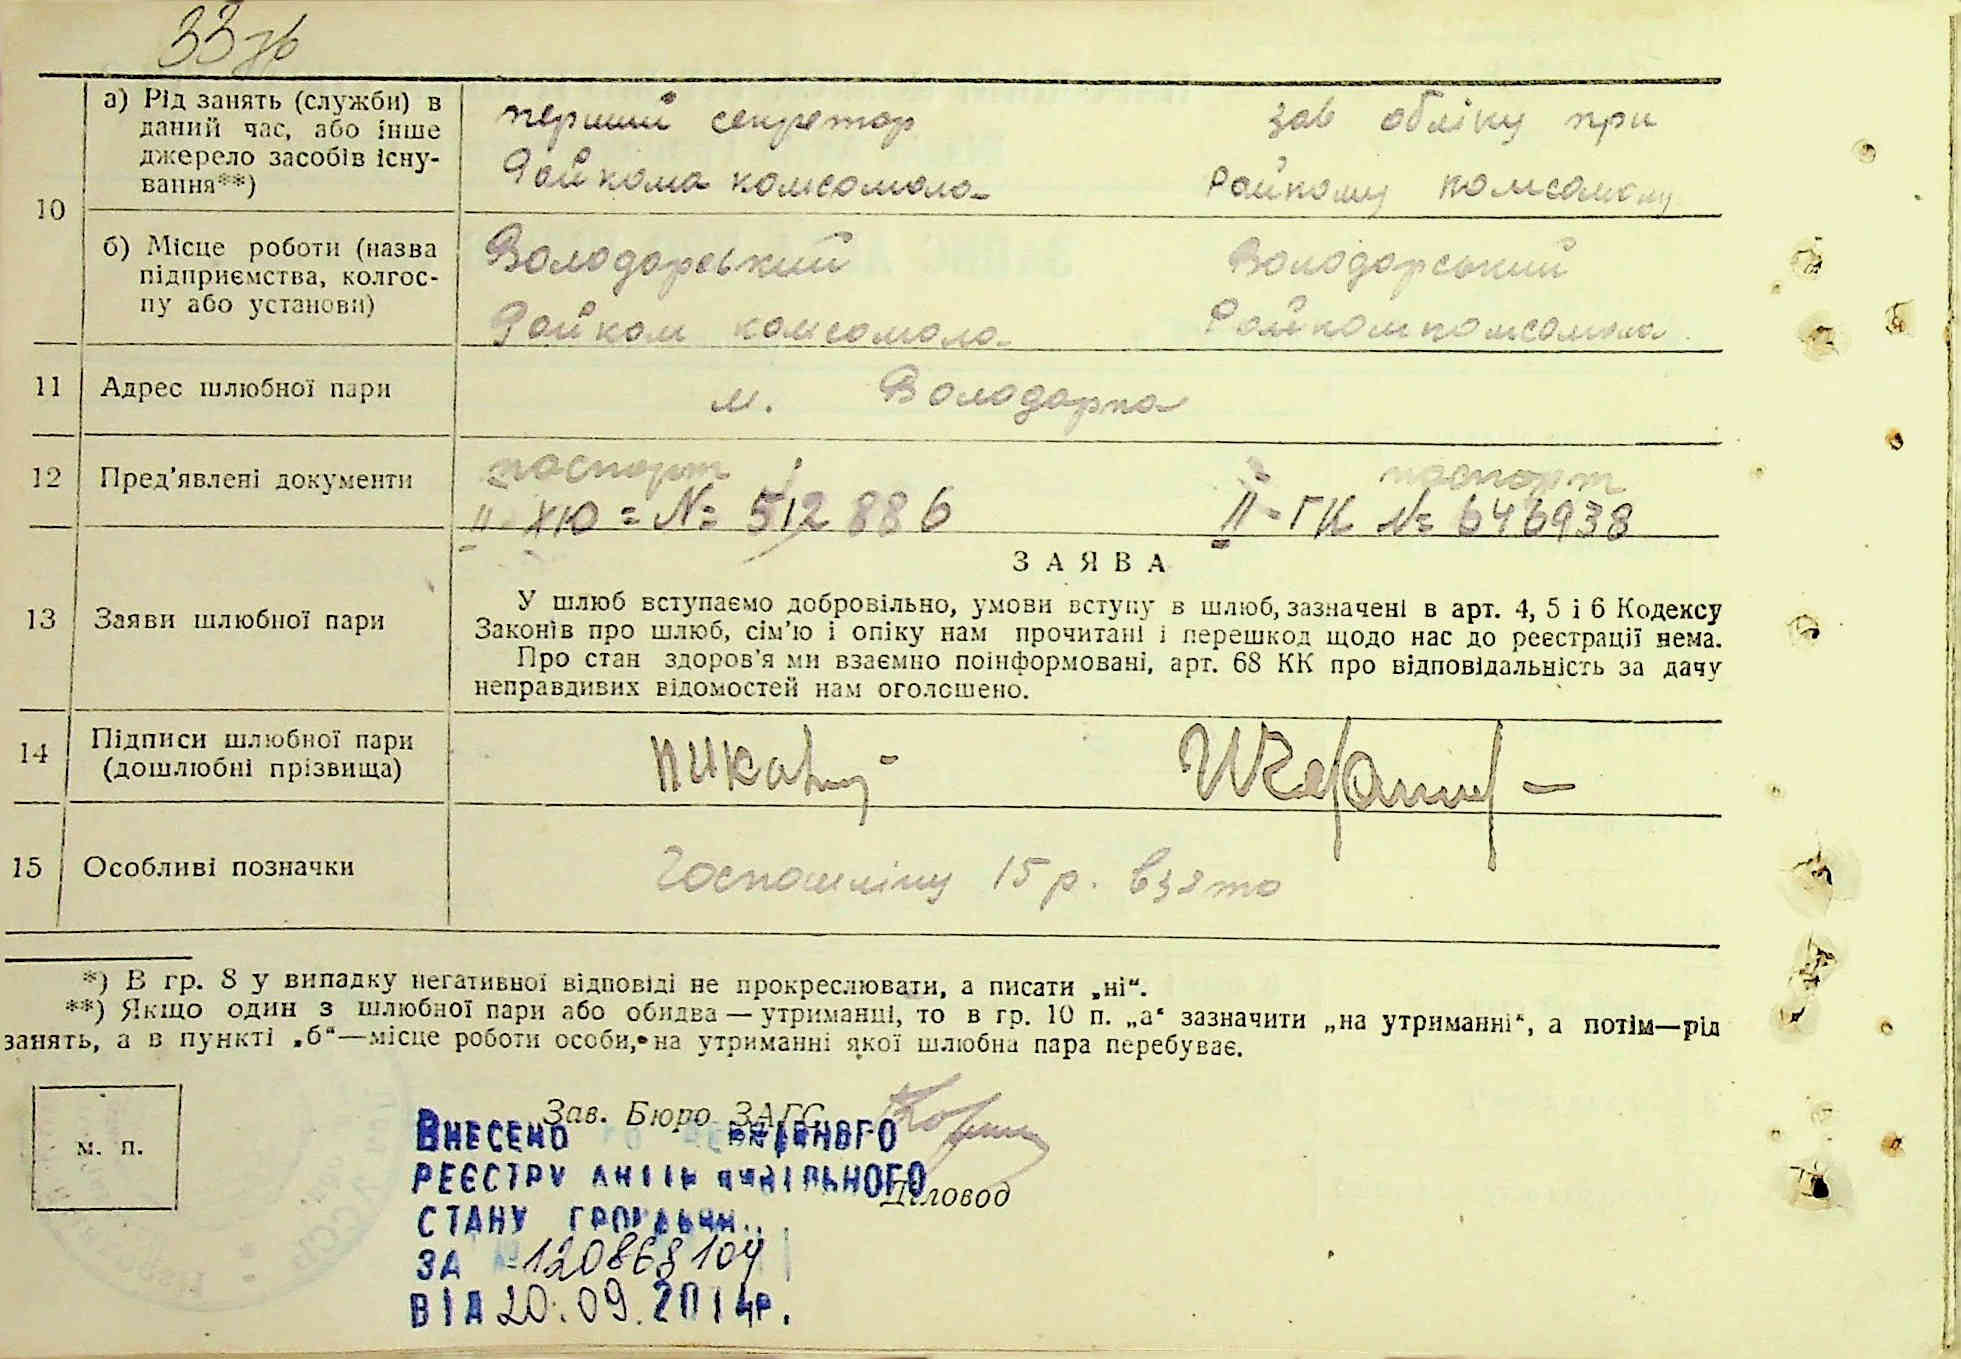 33 зв
10 а) Рід занять (служби) в даний час, або інше джерело засобів існування**)
перший секретар зав обліку при
Райкома комсомола Райкому комсомолу
б) Місце роботи (назва підприємства, колгоспу або установи)
Володарський Володарський
Райком комсомола Райком комсомола
11 Адрес шлюбної пари м. Володарка
12 Пред'явлені документи паспорт паспорт
II-ХЮ = № 512886 II-ГК № 646938
ЗАЯВА
13 Заяви шлюбної пари
У шлюб вступаємо добровільно, умови вступу в шлюб, зазначені в арт. 4, 5 і 6 Кодексу
Законів про шлюб, сім'ю і опіку нам прочитані і перешкод щодо нас до реєстрації нема.
Про стан здоров'я ми взаємно поінформовані, арт. 68 КК про відповідальність за дачу
неправдивих відомостей нам оголошено.
14 Підписи шлюбної пари
(дошлюбні прізвища)
15 Особливі позначки Госпошліну 15 р. взято
*) В гр. 8 у випадку негативної відповіді не прокреслювати, а писати „ні“.
**) Якщо один з шлюбної пари або обидва — утриманці, то в гр. 10 п. „а“ зазначити „на утриманні“, а потім—рід
занять, а в пункті „б“—місце роботи особи, на утриманні якої шлюбна пара перебуває.
Зав. Бюро ЗАГС
м. п.
ВНЕСЕНО ДЕРЖАВНОГО
РЕЄСТРУ АКТІВ ЦИВІЛЬНОГО
Діловод
СТАНУ ГРОМАДЯН
ЗА № 120868104
ВІД 20.09.2014р.